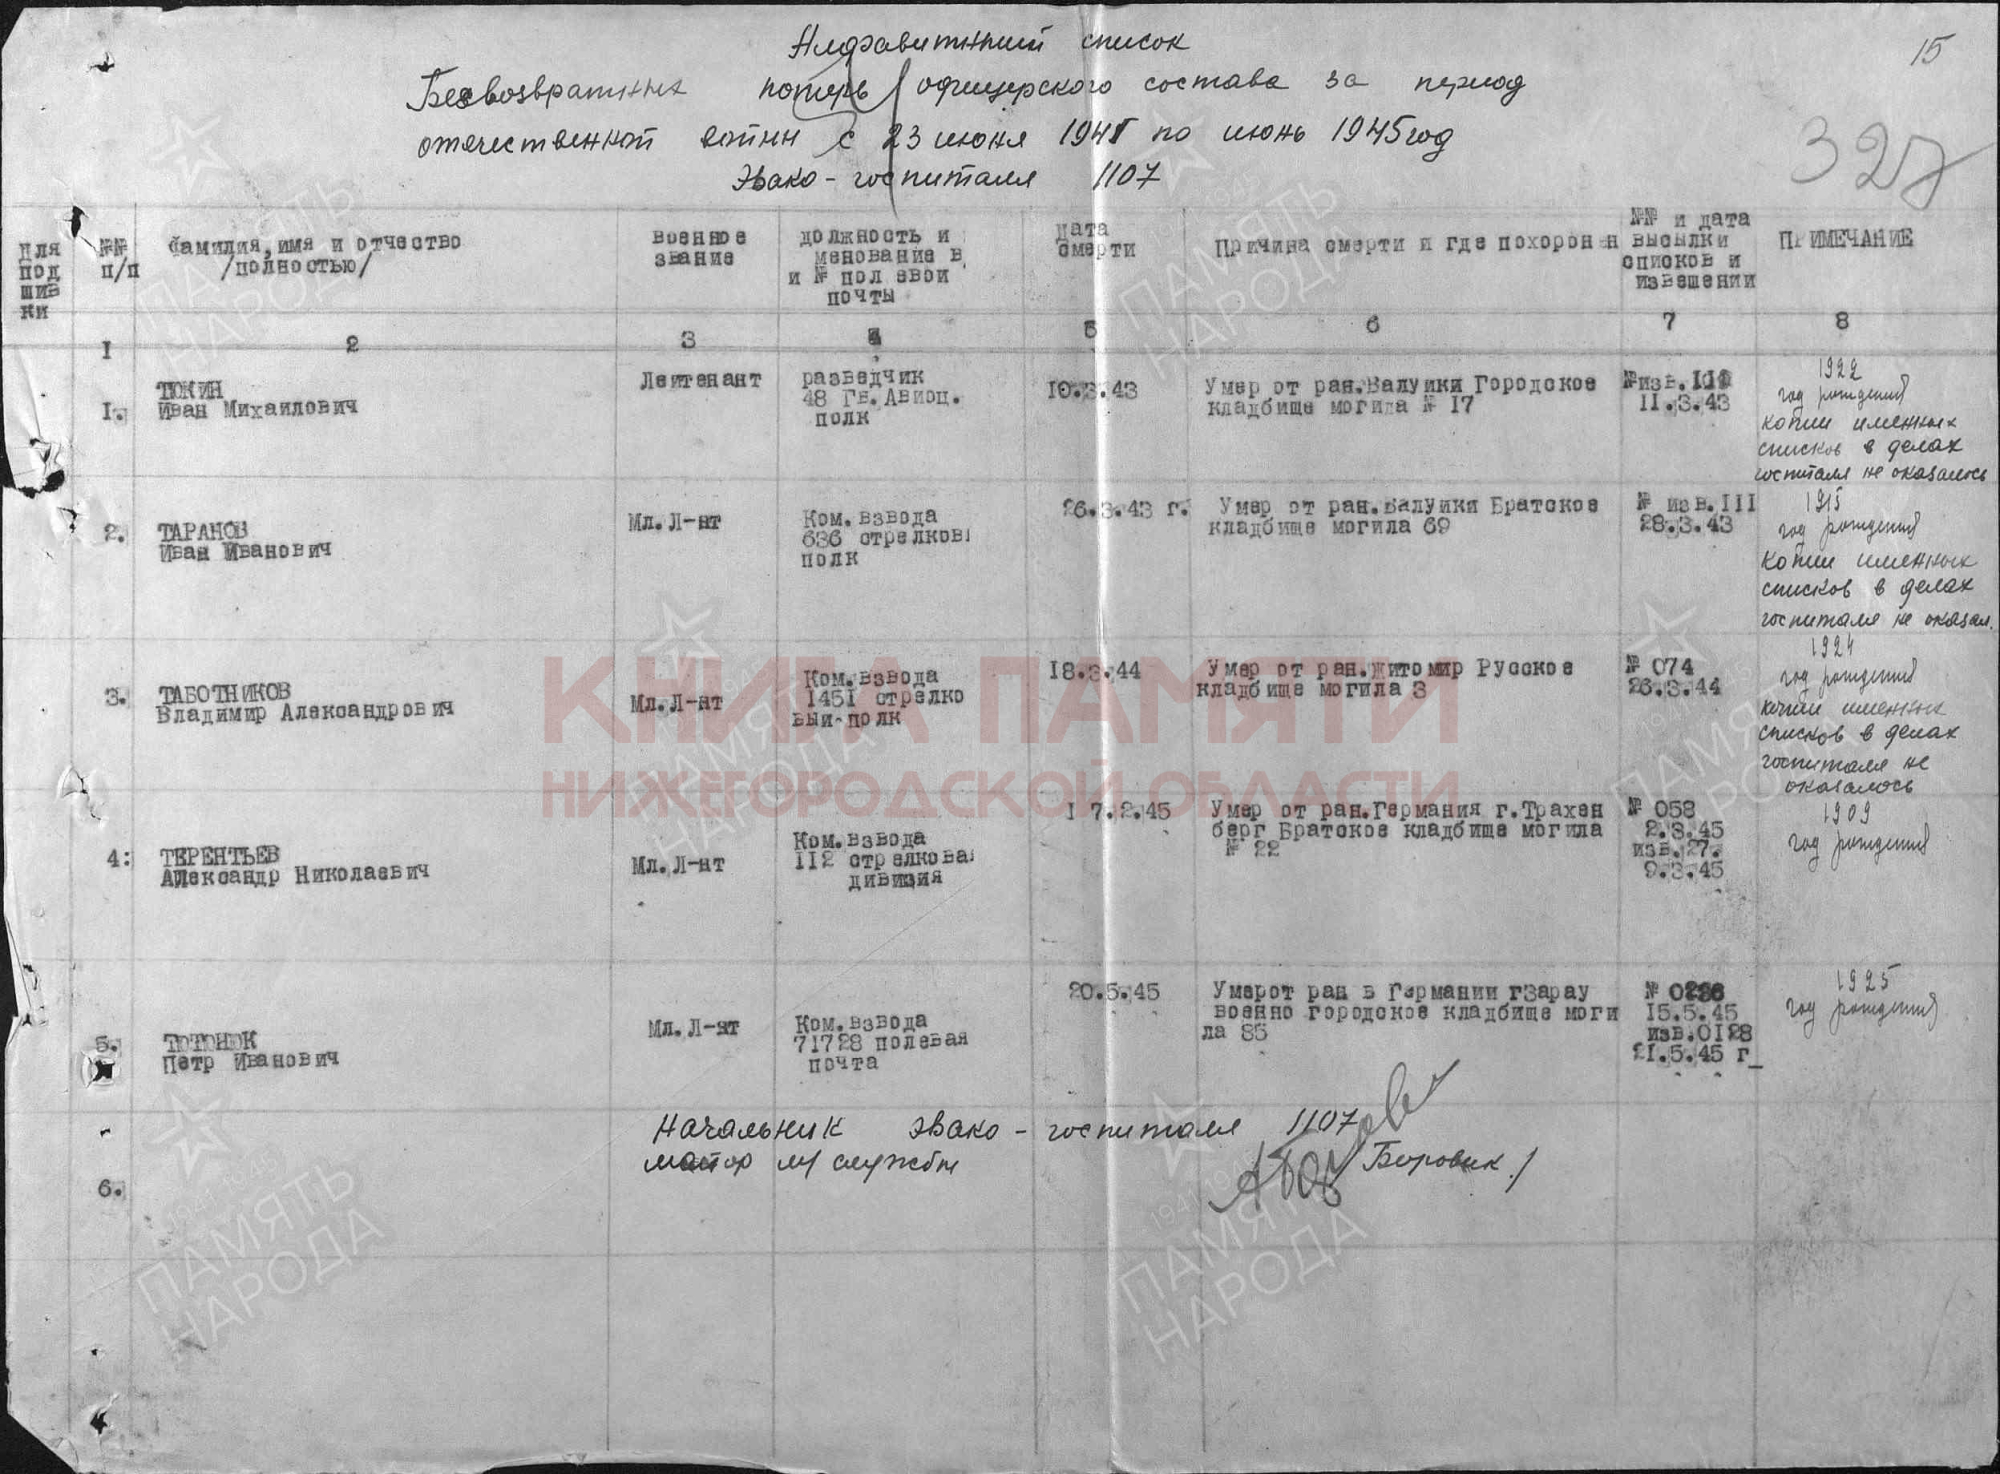 15
Алфавитный список
Безвозвратных потерь офицерского состава за период
отечественной войны с 23 июня 1941 по июнь 1945 год
Эвако-госпиталя 1107
327
Для под шив ки
№№ п/п
Фамилия, имя и отчество /полностью/
военное звание
должность и менование в и № пол евой почты
Дата смерти
Причина смерти и где похоронен
№№ и дата высылки списков и извещении
ПРИМЕЧАНИЕ
1 2 3 4 5 6 7 8
1.
ТЮКИН
Иван Михаилович
Лейтенант
разведчик
48 Гв. Авиоц.
полк
10.3.43
Умер от ран.Валуйки Городское
кладбище могила № 17
№изв.
11.3.43
1922
год рождения
копии именных
списков в делах
госпиталя не оказалось
2.
ТАРАНОВ
Иван Иванович
Мл. Л-нт
Ком. взвода
636 стрелков
полк
26.3.43 г.
Умер от ран.Валуйки Братское
кладбище могила 69
№ изв.III
28.3.43
1915
год рождения
Копии именных
списков в делах
госпиталя не оказал.
3.
ТАБОТНИКОВ
Владимир Александрович
Мл. Л-нт
Ком. взвода
1451 стрелко
вый полк
18.3.44
Умер от ран.Житомир Русское
кладбище могила 3
№ 074
26.3.44
1924
год рождения
копии именных
списков в делах
госпиталя не
оказалось
4:
ТЕРЕНТЬЕВ
Александр Николаевич
Мл. Л-нт
Ком. взвода
112 стрелковая
дивизия
17.2.45
Умер от ран.Германия г.Трахен
берг Братское кладбище могила
№ 22
№ 058
2.3.45
изв.27.
9.3.45
1909
год рождения
5.
ТЮТЮНЮК
Петр Иванович
Мл. Л-нт
Ком. взвода
71728 полевая
почта
20.5.45
Умерот ран в Германии гЗарау
военно городское кладбище моги
ла 85
15.5.45
изв.0128
21.5.45 г_
1925
год рождения
6.
Начальник эвако-госпиталя 1107
майор м/службы Боровик /
КНИГА ПАМЯТИ
НИЖЕГОРОДСКОЙ ОБЛАСТИ
ПАМЯТЬ
НАРОДА
ПАМЯТЬ
НАРОДА
ПАМЯТЬ
НАРОДА
ПАМЯТЬ
НАРОДА
ПАМЯТЬ
НАРОДА
ПАМЯТЬ
НАРОДА